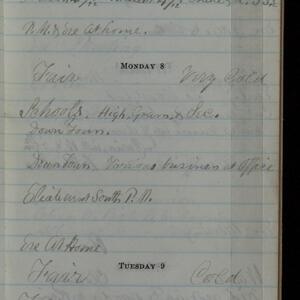 P.M. & Eve At home.
MONDAY 8
Fair Very Cold
Schools, High, Gram. & Sec.
Down Town.
Down Town. Various business at office
South P.M.
Eve At Home
TUESDAY 9
Fair Cold